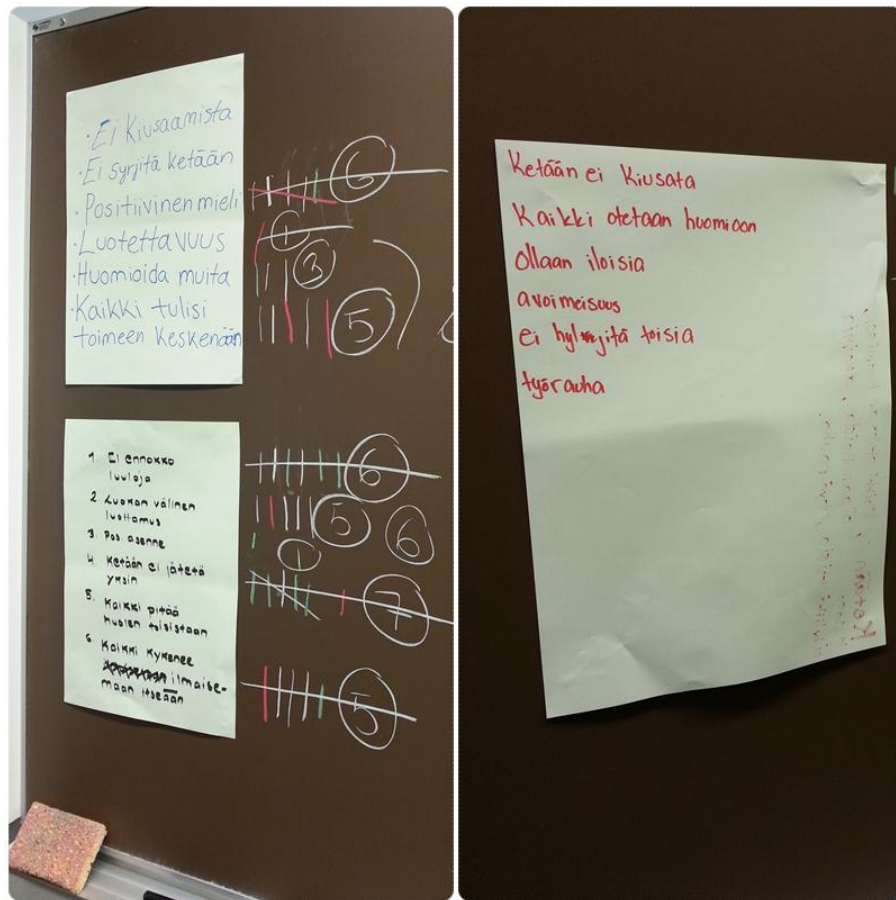 · Ei Kiusaamista
· Ei syrjitä ketään
· Positiivinen mieli
· Luotettavuus
· Huomioida muita
· Kaikki tulisi
toimeen keskenään
6
1
3
5
1. Ei ennakko
luuloja
2. Luokan välinen
luottamus
3. Pos. asenne
4. Ketään ei jätetä
yksin
5. Kaikki pitää
huolen toisistaan
6 Kaikki kykenee
ilmaise-
maan itseään
6
5
6
1
7
5
Ketään ei kiusata
Kaikki otetaan huomioon
ollaan iloisia
avoimeisuus
ei hyljitä toisia
työrauha